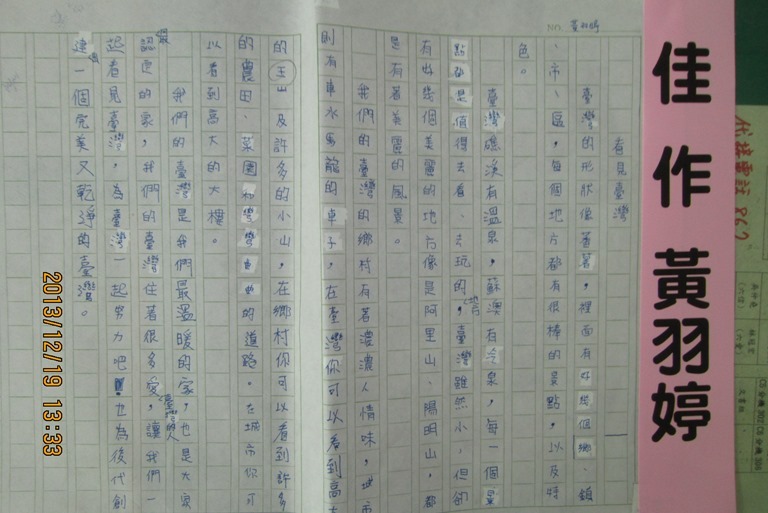 佳作 黃羽婷
NO. 黃羽婷
看見臺灣
臺灣的形狀像蕃薯，裡面有好幾個鄉、鎮
、市、區，每個地方都有很棒的景點，以及特
色。
臺灣礁溪有溫泉，蘇澳有冷泉，每一個景
點都是值得去看、去玩的，臺灣雖然小，但卻
有好幾個美麗的地方像是阿里山、陽明山，都
是有著美麗的風景。
我們的臺灣的鄉村有著濃濃人情味，城市
則有車水馬龍的車子，在臺灣你可以看到高大
的玉山及許多的小山，在鄉村你可以看到許多
的農田、菜園和彎彎曲曲的道路。在城市你可
以看到高大的大樓。
我們的臺灣是我們最溫暖的家，也是大家
最認定的家，我們的臺灣住著很多愛臺灣的人，讓我們一
起看見臺灣，為臺灣一起努力吧，也為後代創
建一個完美又乾淨的臺灣。
2013/12/19 13:33
代接電話 867